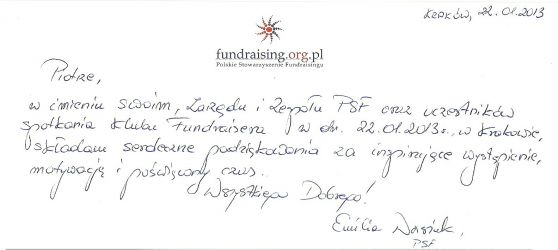 Kraków, 22.01.2013
fundraising.org.pl
Polskie Stowarzyszenie Fundraisingu
Piotrze,
w imieniu swoim, Zarządu i Zespołu PSF oraz uczestników
spotkania Klubu Fundraisera w dn. 22.01.2013r., w Krakowie,
składam serdeczne podziękowania za inspirujące wystąpienie,
motywację i poświęcony czas.
Wszystkiego Dobrego!
Emilia
PSF